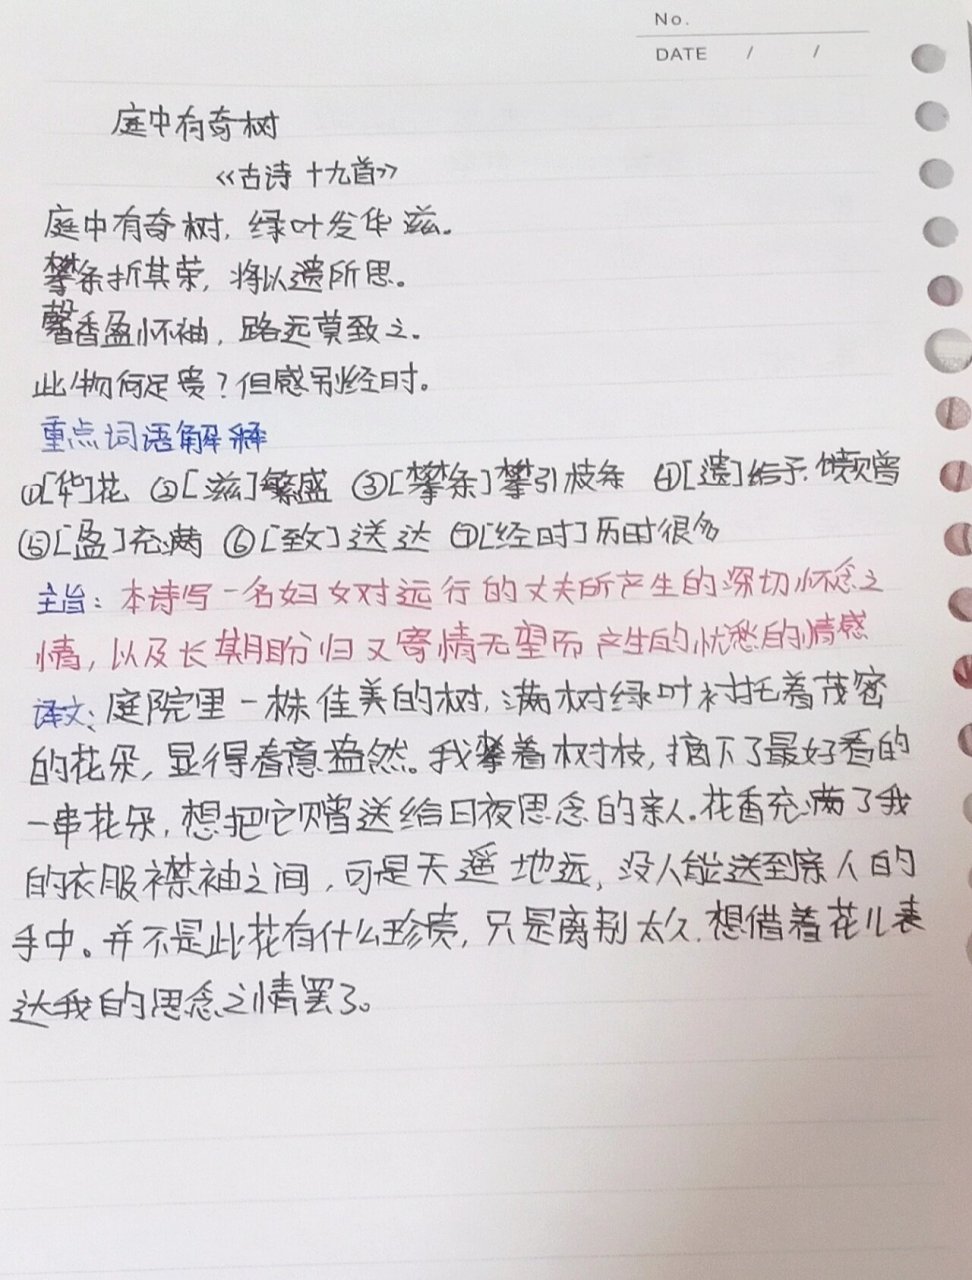 No.
DATE / /
庭中有奇树
《古诗十九首》
庭中有奇树，绿叶发华滋。
攀条折其荣，将以遗所思。
馨香盈怀袖，路远莫致之。
此物何足贵？但感别经时。
重点词语解释
①[华]花 ②[滋]繁盛 ③[攀条]攀引枝条 ④[遗]给予、馈赠
⑤[盈]充满 ⑥[致]送达 ⑦[经时]历时很多
主旨：本诗写一名妇女对远行的丈夫所产生的深切怀念之
情，以及长期盼归又寄情无望而产生的忧愁的情感
译文：庭院里一株佳美的树，满树绿叶衬托着茂密
的花朵，显得春意盎然。我攀着树枝，摘下了最好看的
一串花朵，想把它赠送给日夜思念的亲人。花香充满了我
的衣服襟袖之间，可是天遥地远，没人能送到亲人的
手中。并不是此花有什么珍贵，只是离别太久，想借着花儿表
达我的思念之情罢了。